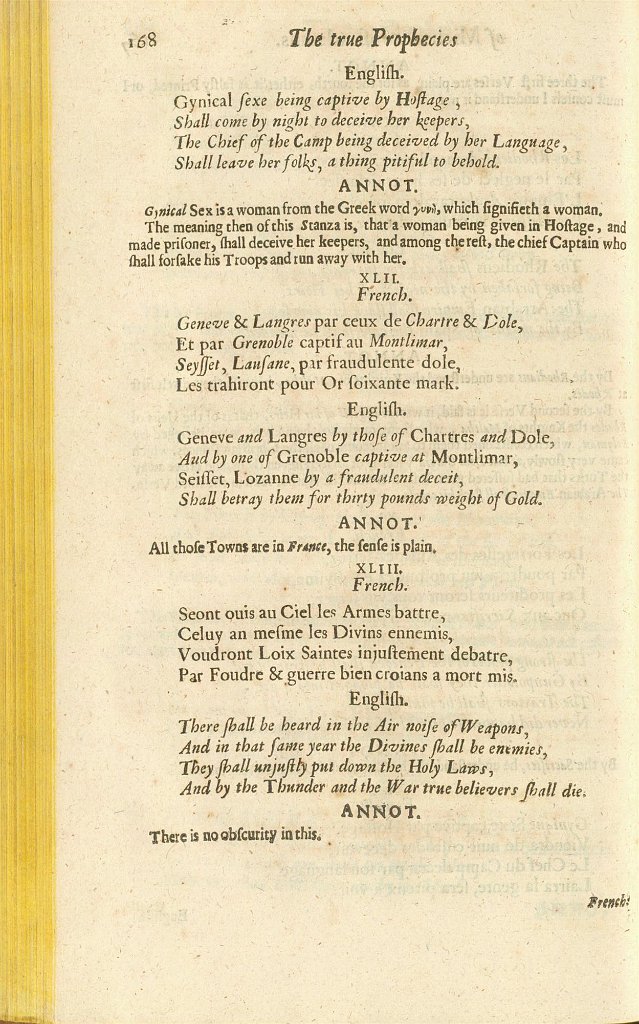 168 The true Prophecies
Engliſh.
Gynical ſexe being captive by Hoſtage ,
Shall come by night to deceive her keepers,
The Chief of the Camp being deceived by her Language,
Shall leave her folks, a thing pitiful to behold.
ANNOT.
Gynical Sex is a woman from the Greek word γυνὴ, which ſignifieth a woman.
The meaning then of this Stanza is, that a woman being given in Hoſtage, and
made priſoner, ſhall deceive her keepers, and among the reſt, the chief Captain who
ſhall forſake his Troops and run away with her.
XLII.
French.
Geneve & Langres par ceux de Chartre & Dole,
Et par Grenoble captif au Montlimar,
Seyſſet, Lauſane, par fraudulente dole,
Les trahiront pour Or ſoixante mark.
Engliſh.
Geneve and Langres by thoſe of Chartres and Dole,
Aud by one of Grenoble captive at Montlimar,
Seiſſet, Lozanne by a fraudulent deceit,
Shall betray them for thirty pounds weight of Gold.
ANNOT.
All thoſe Towns are in France, the ſenſe is plain.
XLIII.
French.
Seont ouis au Ciel les Armes battre,
Celuy an meſme les Divins ennemis,
Voudront Loix Saintes injuſtement debatre,
Par Foudre & guerre bien croians a mort mis.
Engliſh.
There ſhall be heard in the Air noiſe of Weapons,
And in that ſame year the Divines ſhall be enemies,
They ſhall unjuſtly put down the Holy Laws,
And by the Thunder and the War true believers ſhall die.
ANNOT.
There is no obſcurity in this.
French: